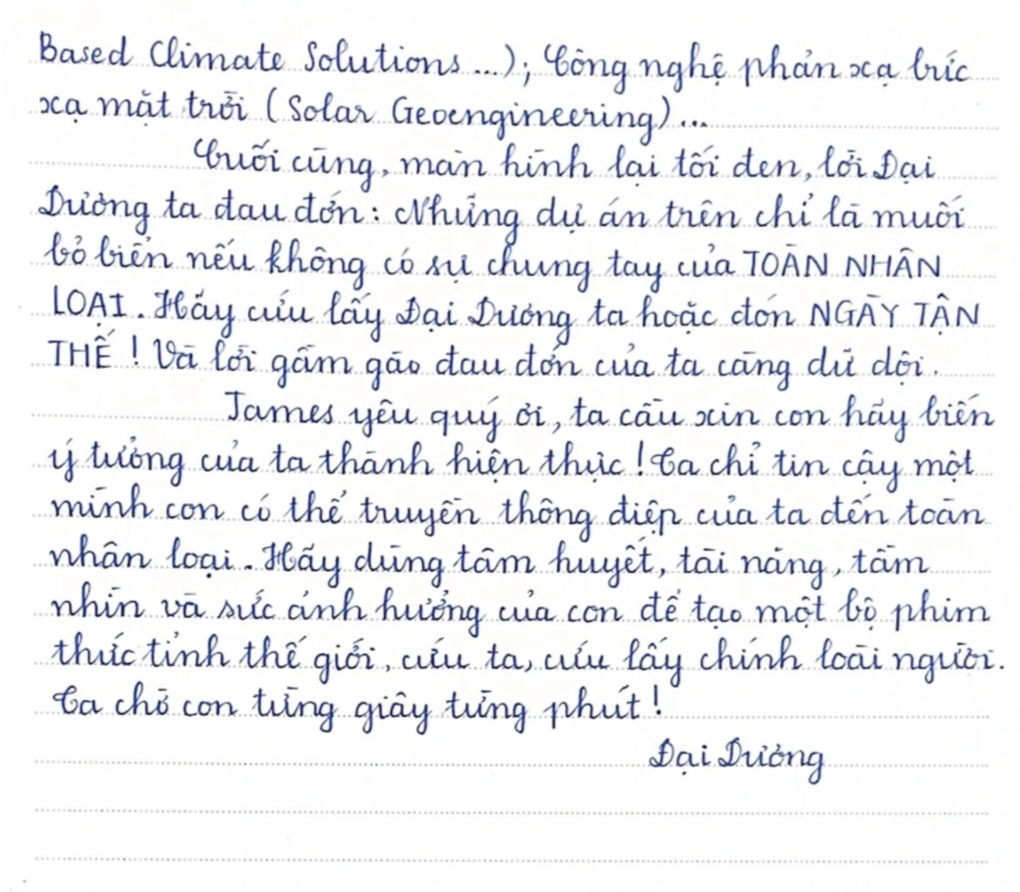 Based Climate Solutions...); Công nghệ phản xạ bức
xạ mặt trời (Solar Geoengineering)...
Cuối cùng, màn hình lại tối đen, lời Đại
Dương ta đau đớn: Những dự án trên chỉ là muối
bỏ biển nếu không có sự chung tay của TOÀN NHÂN
LOẠI. Hãy cứu lấy Đại Dương ta hoặc đón NGÀY TẬN
THẾ! Và lời gầm gào đau đớn của ta càng dữ dội.
James yêu quý ơi, ta cầu xin con hãy biến
ý tưởng của ta thành hiện thực! Ta chỉ tin cậy một
mình con có thể truyền thông điệp của ta đến toàn
nhân loại. Hãy dùng tâm huyết, tài năng, tầm
nhìn và sức ảnh hưởng của con để tạo một bộ phim
thức tỉnh thế giới, cứu ta, cứu lấy chính loài người.
Ta chờ con từng giây từng phút!
Đại Dương